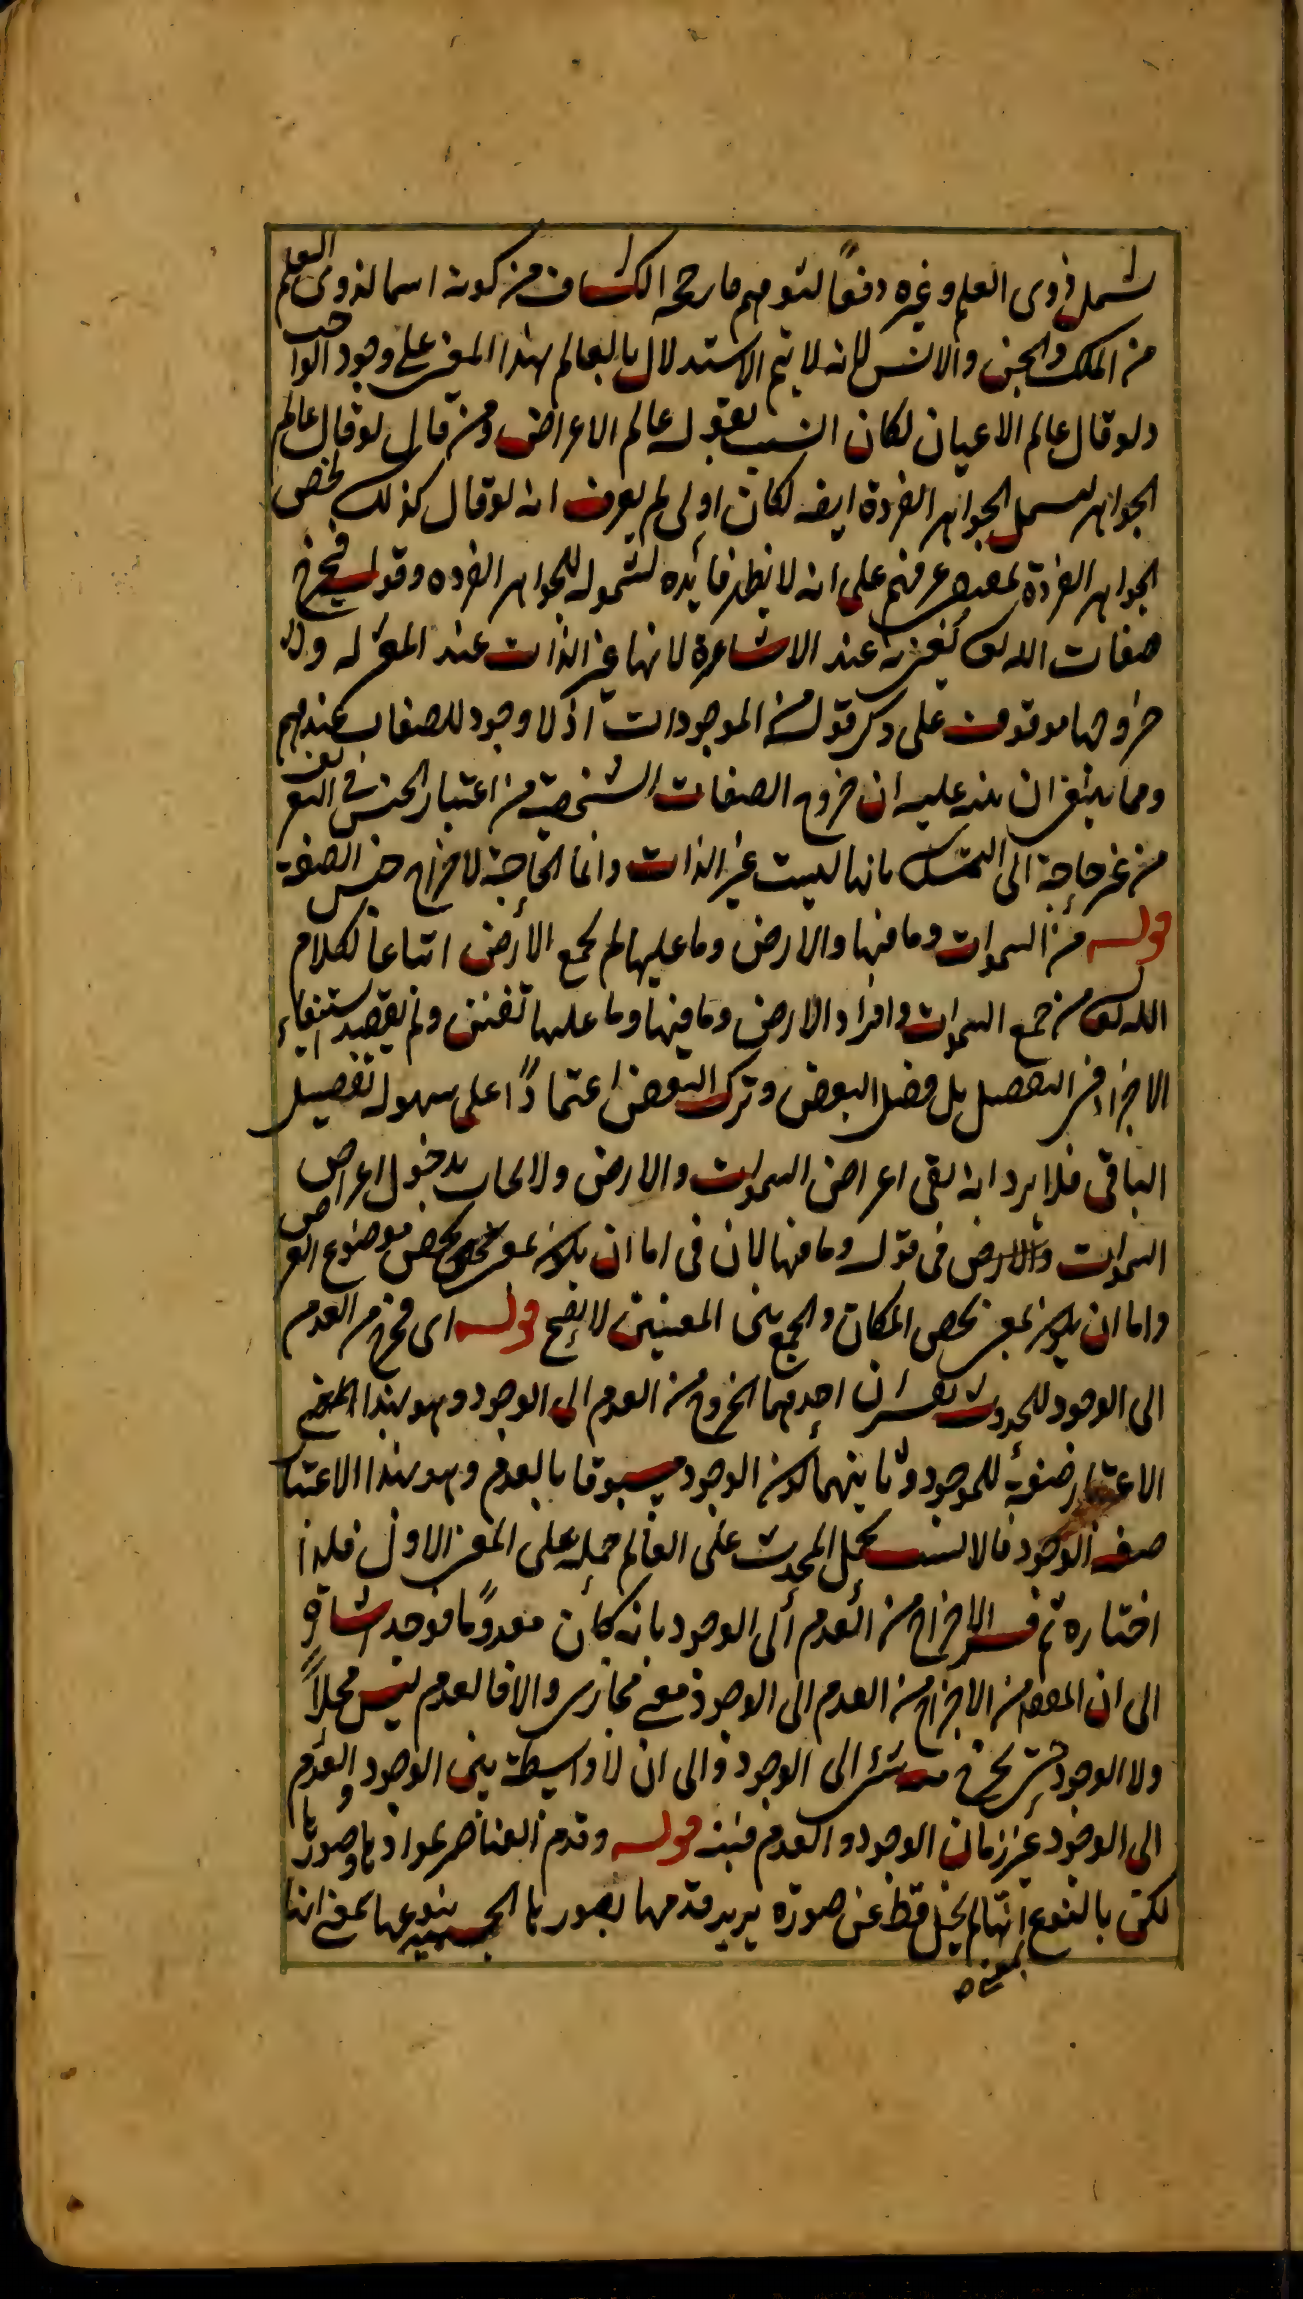 يشمل ذوى العلم وغيره دفعاً لتوهم ما رجحه الكشاف من كونه اسما لذوى العلم
من الملك والجن والانس لانه لا يتم الاستدلال بالعالم بهذا المعنى على وجود الواجب
ولو قال عالم الاعيان لكان انسب بقوله عالم الاعراض ومن قال لو قال عالم
الجواهر ليشمل الجواهر الفردة ايضه لكان اولى لم يعرف انه لو قال كذلك لخص
الجواهر الفردة عرفهم على انه لا يظهر فائده لشموله للجواهر الفرده وقوله فيخرج
صفات الله تعه عند الاشاعرة لانها غير الذات عند المعتزله
خروجها موقوف على ذكر قوله من الموجودات اذ لا وجود للصفات عندهم
ومما ينبغى ان ينبه عليه ان خروج الصفات الشخصية من اعتبار الجنس فى التعريف
من غير حاجة الى التمسك بانها ليست غير الذات وانما الحاجة لاخراج جنس الصفة
قوله من السموات وما فيها والارض وما عليها لم يجمع الارض اتباعاً لكلام
الله تعه من جمع السموات وافراد الارض وما فيها وما عليها تفنن ولم يقصد استيفاء
الاجزاء فى التفصيل بل فصل البعض وترك البعض اعتماداً على سهولة تفصيل
الباقى فلا يرد انه بقى اعراض السموات والارض ولا يجاب بدخول اعراض
السموات والارض فى قوله وما فيها لان فى اما ان يكون بمعنى يخص موضوع العرض
واما ان يكون بمعنى يخص المكان والجمع بين المعنيين لا يصح قوله اى مخرج من العدم
الى الوجود للحدوث تفسيران احدهما الخروج من العدم الى الوجود وهو بهذا
الاعتبار صفة للموجود وثانيهما كون الوجود مسبوقا بالعدم وهو بهذا الاعتبار
صفة الوجود فالانسب بحمل المحدث على العالم حمله على المعنى الاول فلذا
اختاره ثم فسر الاخراج من العدم الى الوجود بانه كان معدوماً فوجد اشارة
الى ان المقصد من الاخراج من العدم الى الوجود معنى مجازى والا فالعدم ليس محلاً
ولا الوجود حتى يخرج منه شئ الى الوجود والى ان لا واسطة بين الوجود والعدم
الى الوجود غير زمان الوجود والعدم فتنبه قوله وقدم العناصر بموادها وصورها
لكن بالنوع بمعنى انها لم تخل قط عن صورة يريد قدمها بصورها الجسمية بنوعها بمعنى انها